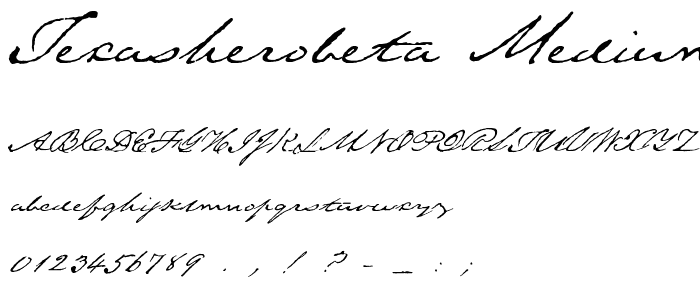 Texasherobeta Medium
ABCDEFGHIJKLMNOPQRSTUVWXYZ
abcdefghijklmnopqrstuvwxyz
0123456789 . , ! ? - _ : ;